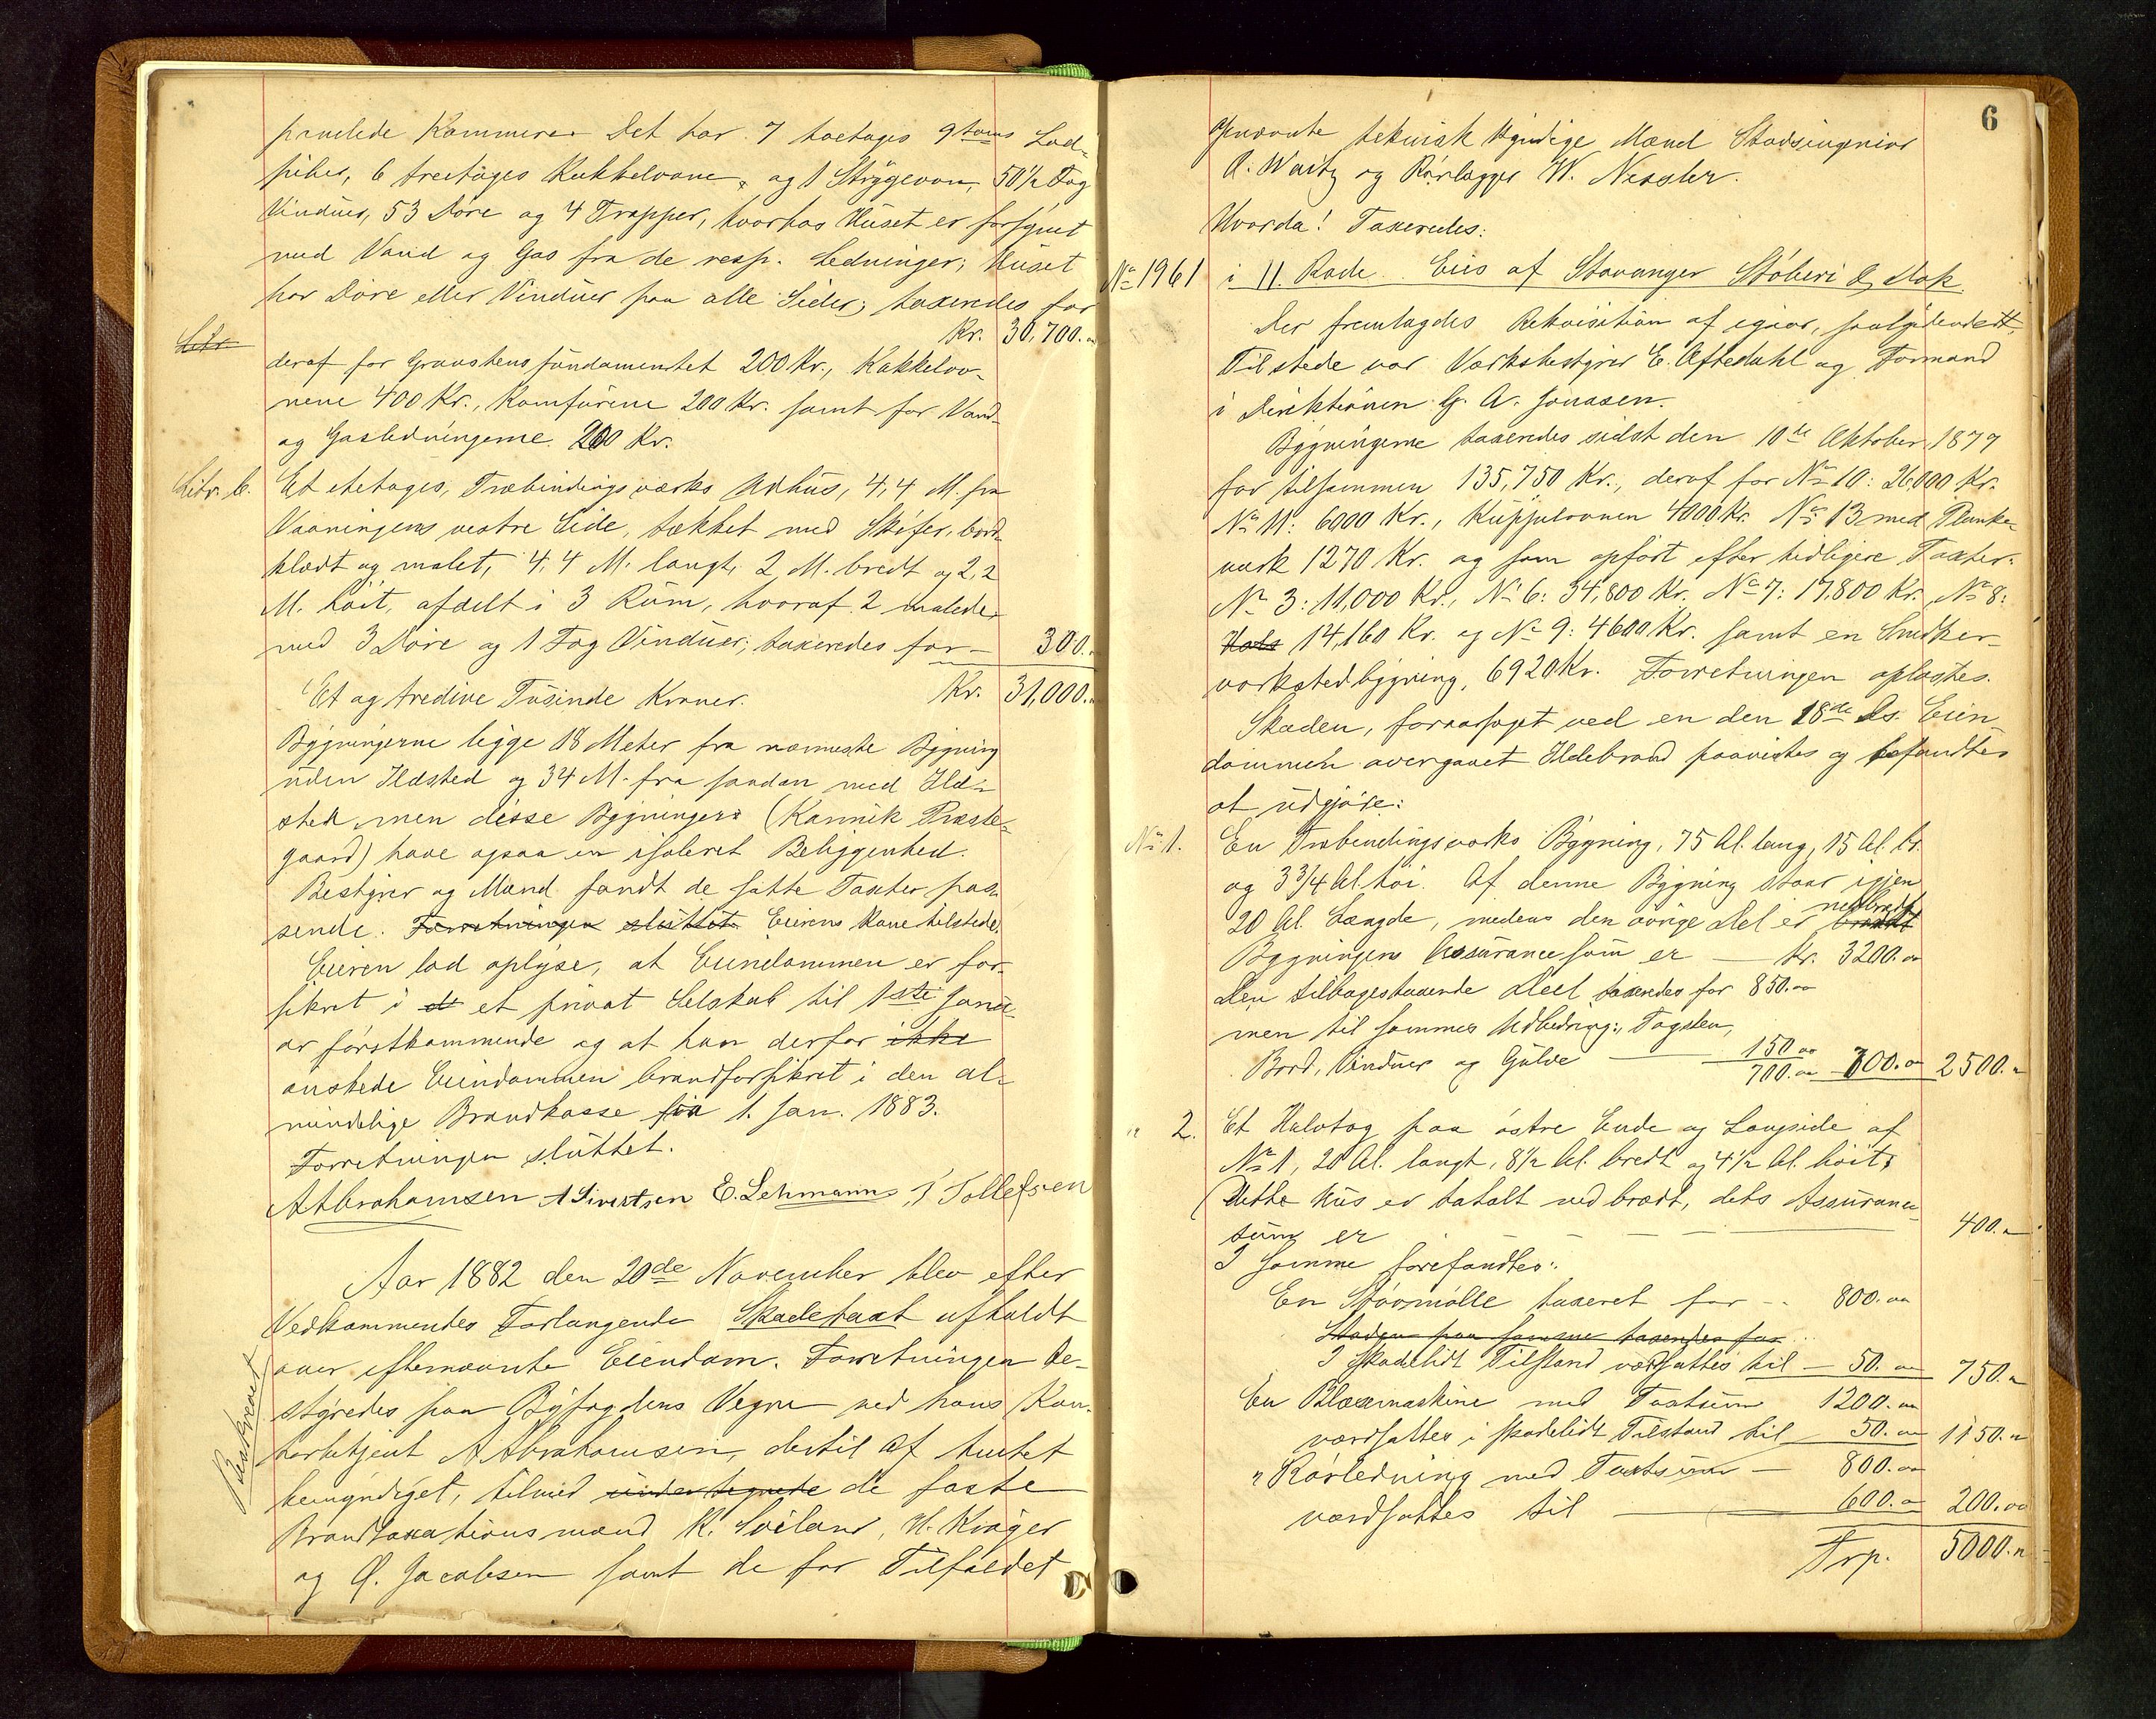 panelede Kammere. Det har 7 toetages 9 toms Lod-
piber, 6 treetages Kakkelovne, og 1 Strygeovn, 50 1/2 Fag
Vinduer, 53 Döre og 4 Trapper, hvorhos Huset er forsynet
med Vand og Gas fra de resp. Ledninger; Huset
har Döre eller Vinduer paa alle Sider; taxeredes for
Kr. 30,700.
Litr
deraf for Graastensfundamentet 200 Kr., Kakkelov-
nene 400 Kr., Komfurene 200 Kr. samt for Vand-
og Gasledningerne 200 Kr.
Litr. b. Et etetages, Træbindingsværks Udhus, 4,4 M. fra
Vaaningens vestre Side, tækket med Skifer, bord-
klædt og malet, 4,4 M. langt, 2 M. bredt og 2,2
M. höit, afdelt i 3 Rum, hvoraf 2 malede
med 3 Döre og 1 Fag Vinduer; taxeredes for - 300.
Et og tredive Tusinde Kroner. Kr. 31,000.
Bygningerne ligge 18 Meter fra nærmeste Bygning
uden Ildsted og 34 M. fra saadan med Ild-
sted men disse Bygninger (Kannik Præste-
gaard) have ogsaa en isoleret Beliggenhed.
Bestyrer og Mænd fandt de satte Taxter pas-
sende. Forretningen sluttet. Eierens Kone tilstede.
Eieren lod oplyse, at Eiendommen er for-
sikret i et privat Selskab til 1ste Janu-
ar förstkommende og at han derfor ikke
önskede Eiendommen brandforsikret i den al-
mindelige Brandkasse fra 1. Jan. 1883.
Forretningen sluttet.
A Abrahamsen A Sivertsen E. Lehmann T Tollefsen
Aar 1882 den 20de November blev efter
Vedkommendes Forlangende Skadetaxt afholdt
over efternævnte Eiendom. Forretningen be-
styredes paa Byfogdens Vegne ved hans Kon-
torbetjent A Abrahamsen, dertil af Amtet
bemyndiget, tilmed undertegnede de faste
Brandtaxationsmænd K. Söiland, H. Kröger
og O. Jacobsen samt de for Tilfældet
Beskrevet
6
opnævnte teknisk kyndige Mænd Stadsingeniör
R. Waitz og Rörlægger W. Nessler.
Hvorda! Taxeredes:
No 1961 i 11. Rode. Eies af Stavanger Stöberi & Dok
Der fremlagdes Rekvisition af igaar, saalydende
Tilstede var Værksbestyrer E. Aftedahl og Formand
i Direktionen G. A. Jonasen.
Bygningerne taxeredes sidst den 10de Oktober 1877
for tilsammen 135,750 Kr., deraf for No 10: 26,000 Kr.
No 11: 6000 Kr., Kuppulovnen 4000 Kr. No 13 med Planke-
værk 1270 Kr. og som opfört efter tidligere Taxter:
No 3: 11,000 Kr., No 6: 34,800 Kr. No 7: 17,800 Kr., No 8:
14,160 Kr. og No 9: 4600 Kr. samt en Snedker-
værkstedbygning, 6920 Kr. Forretningen oplæstes.
Skaden, foraarsaget ved en den 18de ds. Eien-
dommen overgaaet Ildebrand paavistes og befandtes
at udgjöre:
No 1. En Træbindingsværks Bygning, 75 Al. lang, 15 Al. br.
og 3 3/4 Al. höi. Af denne Bygning staar igjen
20 Al. Længde, medens den övrige Del er brændt nedbrændt
Bygningens Assurancesum er - Kr. 3200.
Den tilbagestaaende Deel taxeredes for 850.
men til sammes Udbedring: Tagsten,
Bord, Vinduer og Gulve 150
700. 700. 2500.
" 2. Et Halvtag paa östre Ende og Langside af
No 1, 20 Al. langt, 8 1/2 Al. bredt og 4 1/2 Al. höit.
Dette Hus er totalt nedbrændt, dets Assurance-
sum er - 400.
I samme forefandtes:
En Störmölle taxeret for - 800.
Skaden paa samme taxeredes for
I skadelidt Tilstand værdsattes til - 50. 750.
En Blæsemaskine med Taxtsum 1200.
værdsattes i skadelidt Tilstand til 50. 1150.
" Rörledning med Taxtsum - 800.
værdsattes til 600. 200.
Trp. 5000.